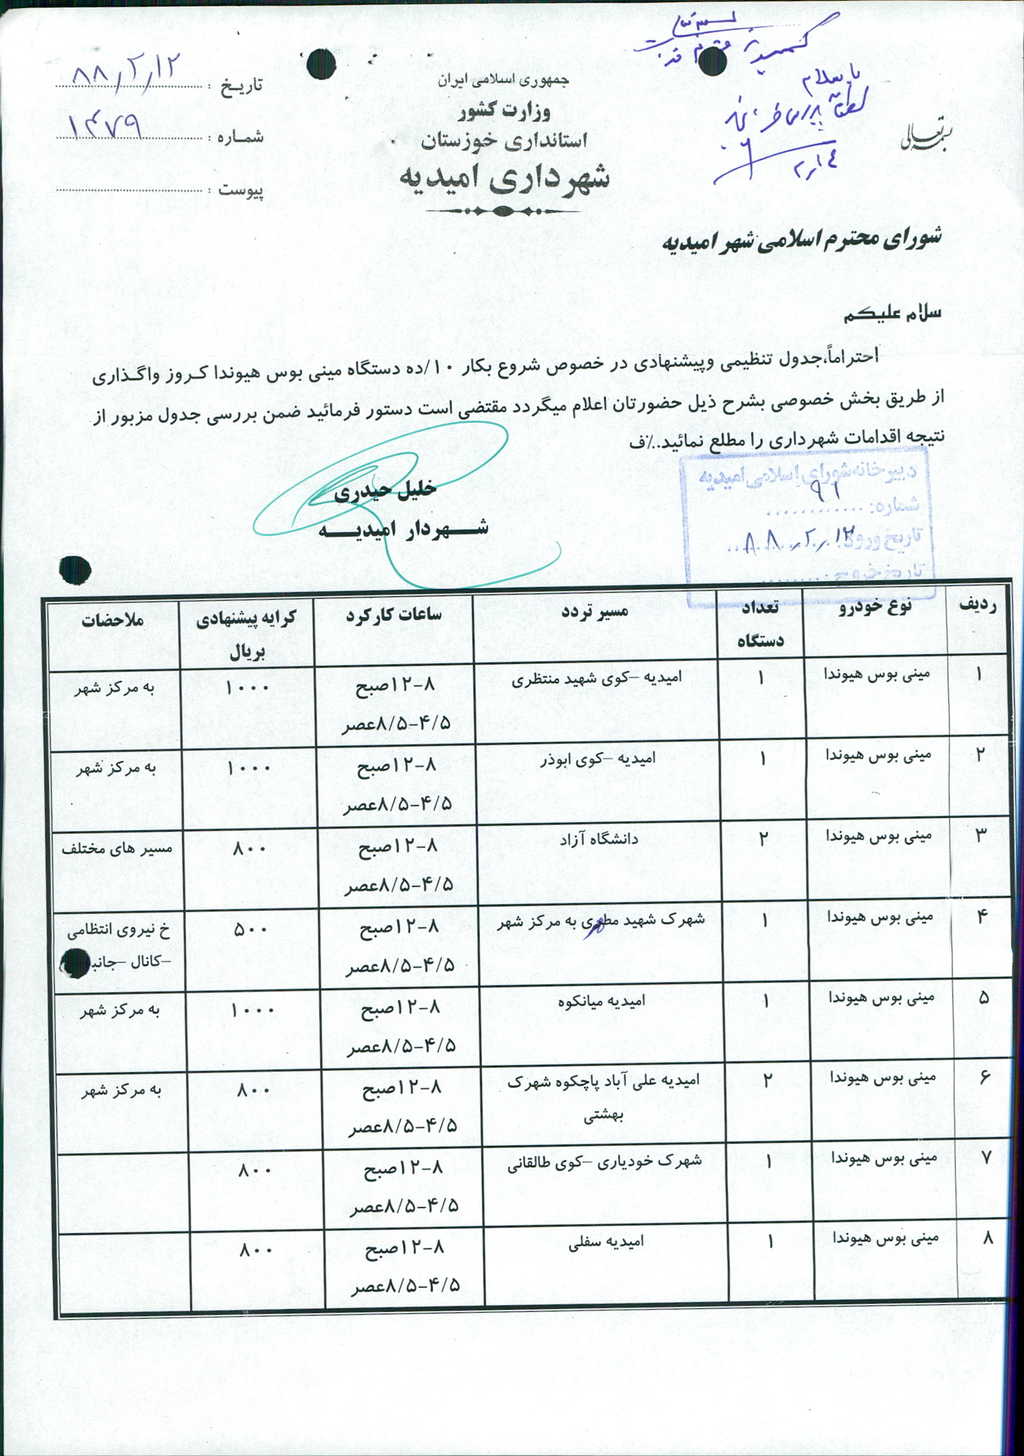 بسمه تعالی
جمهوری اسلامی ایران
وزارت کشور
استانداری خوزستان
شهرداری امیدیه
تاریخ : ۸۸٫۲٫۱۲
شماره : ۱۴۷۹
پیوست :
با سلام
شورای محترم اسلامی شهر امیدیه
سلام علیکم
احتراماً،جدول تنظیمی وپیشنهادی در خصوص شروع بکار ۱۰/ده دستگاه مینی بوس هیوندا کروز واگذاری
از طریق بخش خصوصی بشرح ذیل حضورتان اعلام میگردد مقتضی است دستور فرمائید ضمن بررسی جدول مزبور از
نتیجه اقدامات شهرداری را مطلع نمائید.٪ف
خلیل حیدری
شهردار امیدیه
دبیرخانه شورای اسلامی امیدیه
شماره: ۹۱
تاریخ ورود: ۸۸٫۲٫۱۲
تاریخ خروج:
ردیف	نوع خودرو	تعداد دستگاه	مسیر تردد	ساعات کارکرد	کرایه پیشنهادی بریال	ملاحضات
۱	مینی بوس هیوندا	۱	امیدیه –کوی شهید منتظری	۸-۱۲صبح	۱۰۰۰	به مرکز شهر
۴/۵-۸/۵عصر
۲	مینی بوس هیوندا	۱	امیدیه –کوی ابوذر	۸-۱۲صبح	۱۰۰۰	به مرکز شهر
۴/۵-۸/۵عصر
۳	مینی بوس هیوندا	۲	دانشگاه آزاد	۸-۱۲صبح	۸۰۰	مسیر های مختلف
۴/۵-۸/۵عصر
۴	مینی بوس هیوندا	۱	شهرک شهید مطهری به مرکز شهر	۸-۱۲صبح	۵۰۰	خ نیروی انتظامی
۴/۵-۸/۵عصر	–کانال –جانب
۵	مینی بوس هیوندا	۱	امیدیه میانکوه	۸-۱۲صبح	۱۰۰۰	به مرکز شهر
۴/۵-۸/۵عصر
۶	مینی بوس هیوندا	۲	امیدیه علی آباد پاچکوه شهرک	۸-۱۲صبح	۸۰۰	به مرکز شهر
بهشتی	۴/۵-۸/۵عصر
۷	مینی بوس هیوندا	۱	شهرک خودیاری –کوی طالقانی	۸-۱۲صبح	۸۰۰
۴/۵-۸/۵عصر
۸	مینی بوس هیوندا	۱	امیدیه سفلی	۸-۱۲صبح	۸۰۰
۴/۵-۸/۵عصر